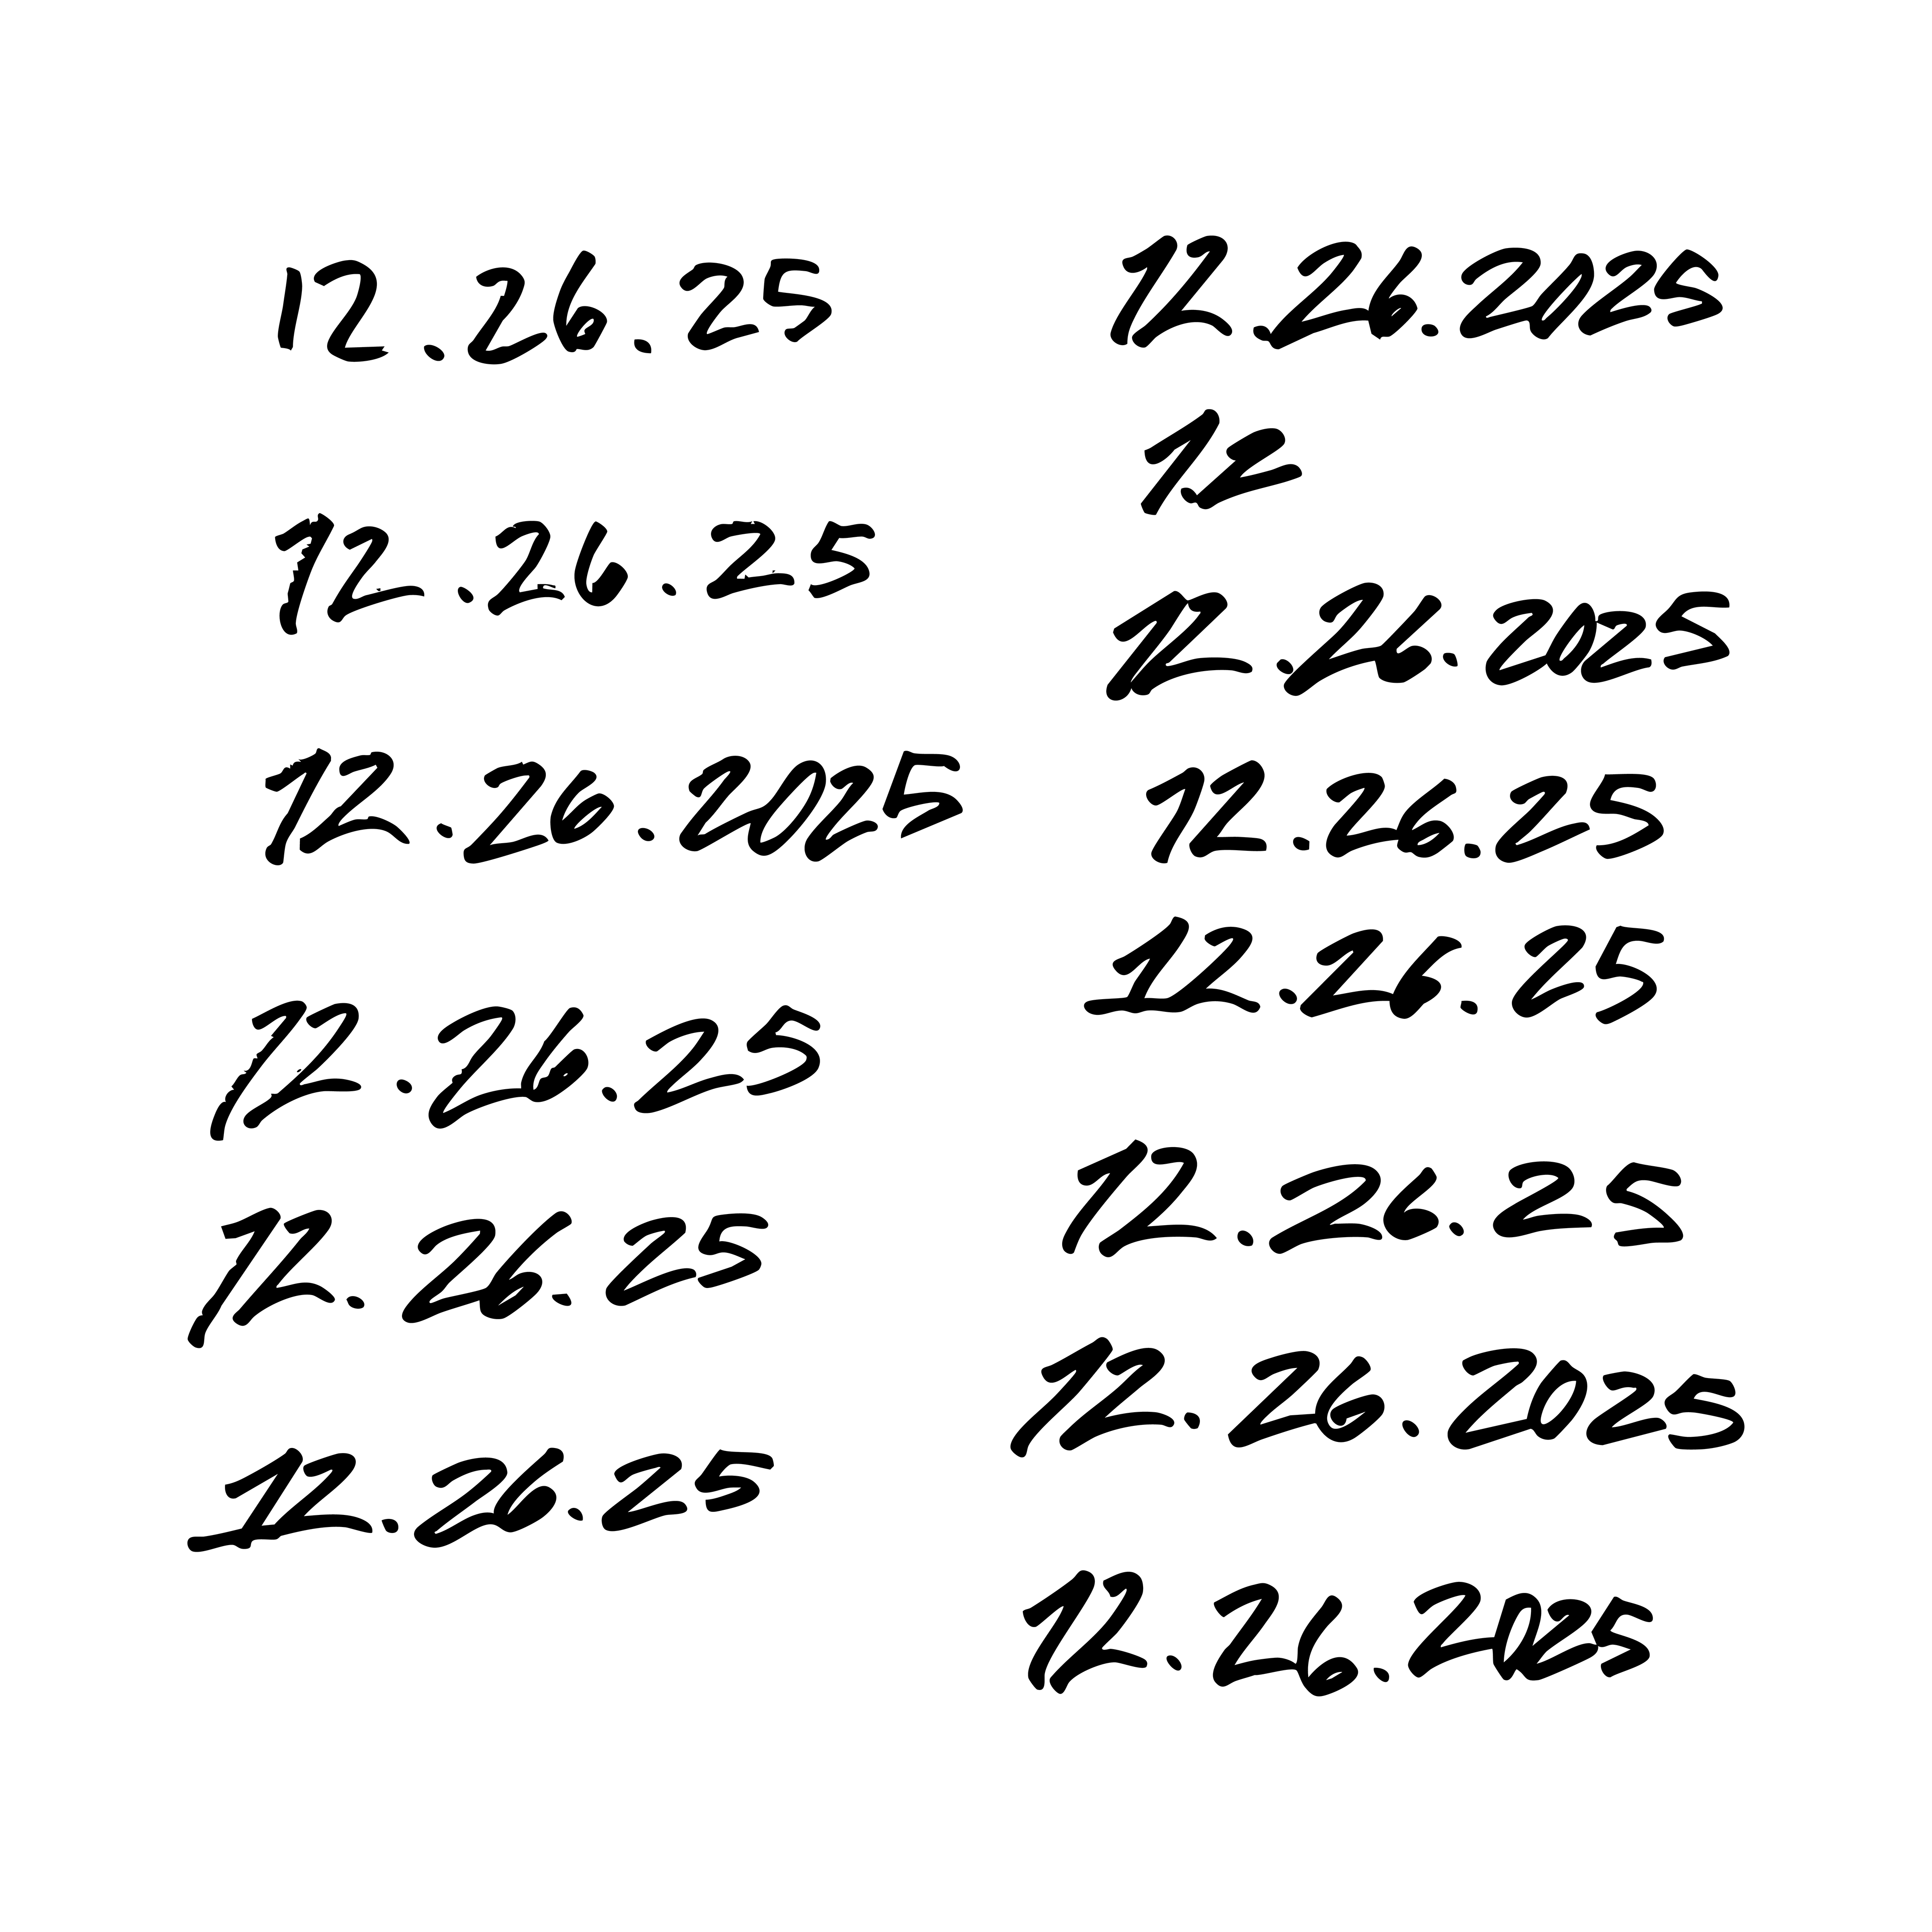 12.26.25
12.26.25
12.26.2025
12.26.25
12.26.25
12.26.25
12.26.2025
12
12.26.2025
12.26.25
12.26.25
12.26.25
12.26.2025
12.26.2025